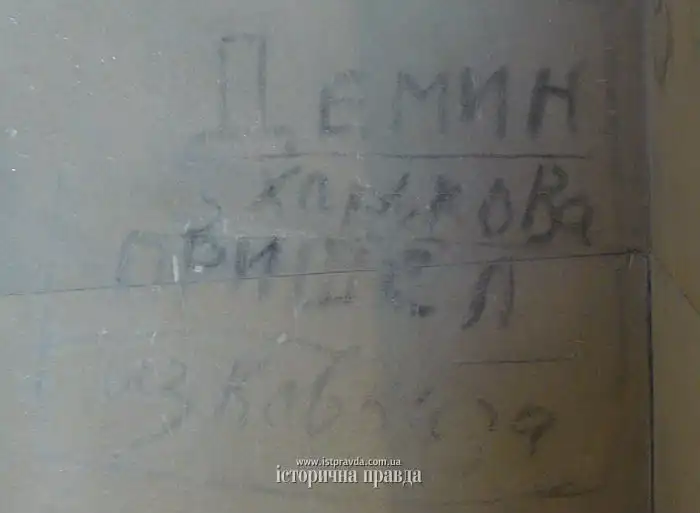 Демин
з харькова
пришел
из кавказа
www.istpravda.com.ua
історична правда